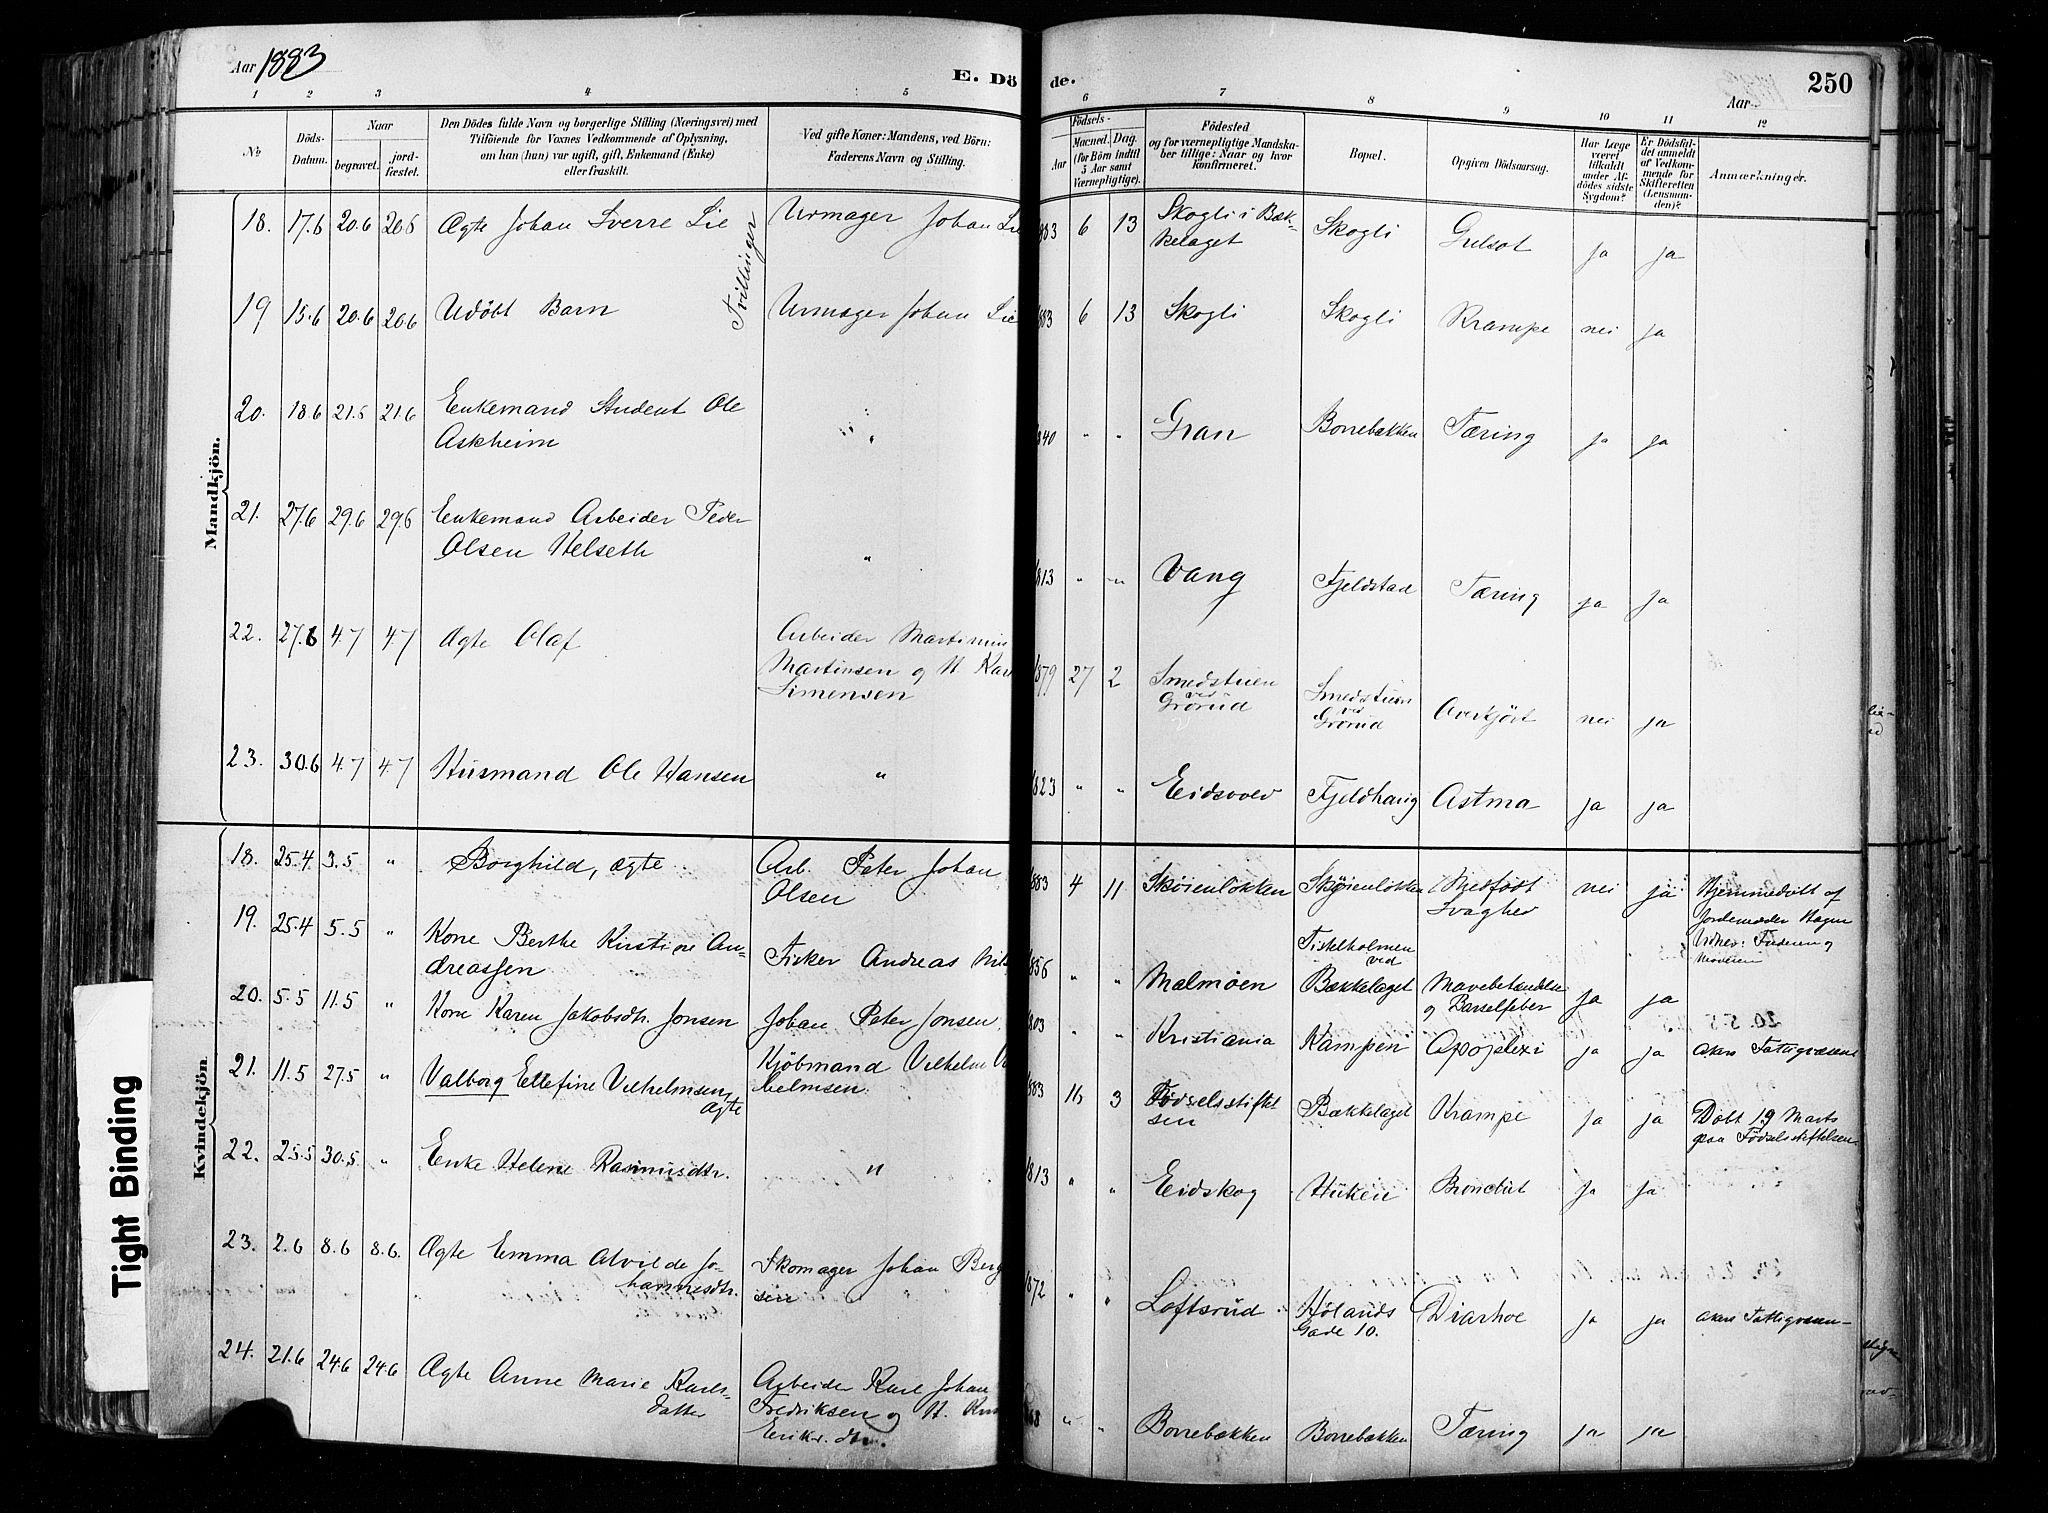 Aar 1883
E. Dö de.
Aar
250
1 2 3 4 5 6 7 8 9 10 11 12
№
Döds-Datum.
Naar
begravet.
jord-fæstet.
Den Dödes fulde Navn og borgerlige Stilling (Næringsvei) med
Tilföiende for Voxnes Vedkommende af Oplysning,
om han (hun) var ugift, gift, Enkemand (Enke)
eller fraskilt.
Ved gifte Koner: Mandens, ved Börn:
Faderens Navn og Stilling.
Födsels-
Aar
Maaned. Dag.
(for Börn indtil
5 Aar samt
Værnepligtige).
Födested
og for værnepligtige Mandska-
ber tillige: Naar og hvor
konfirmeret.
Bopæl.
Opgiven Dödsaarsag.
Har Læge
været
tilkaldt
under Af-
dödes sidste
Sygdom?
Er Dödsfal-
det anmeldt
af Vedkom-
mende for
Skifteretten
(Lensman-
den)?
Anmærkninger.
Mandkjön.
18. 17.6 20.6 20.6 Ægte Johan Sverre Lie Urmager Johan Lie 883 6 13 Skogli i Bæk-
kelaget Skogli Gulsot ja ja
Tvillinger
19 15.6 20.6 20.6 Udöbt Barn Urmager Johan Lie 883 6 13 Skogli Skogli Krampe nei ja
20. 18.6 21.6 21.6 Enkemand Student Ole
Askheim " 840 " " Gran Borrebækken Tæring ja ja
21. 27.6 29.6 29.6 Enkemand Arbeider Peder
Olsen Helseth " 1813 " " Vang Fjeldstad Tæring ja ja
22. 27.6 4.7 4.7 Ægte Olaf Arbeider Martinius
Martinsen og H. Kar
Simensen 1879 27 2 Smedstuen
ved
Grorud Smedstuen
ved
Grorud Overkjört nei ja
23. 30.6 4.7 4.7 Husmand Ole Hansen " 1823 " " Eidsvold Fjeldhaug Astma ja ja
Kvindekjön
18. 25.4 3.5 " Borghild, ægte Arb. Peter Johan
Olsen 883 4 11 Skøienløkken Skøienløkken Medfödt
Svaghed nei ja Hjemmedöbt af
Jordemoder Hagen
Vidner: Faderen og
Moderen
19. 25.4 5.5 " Kone Berthe Kirstine An-
dreassen Fisker Andreas Nils 856 " " Malmøen Fiskeholmen
ved
Bækkelaget Mavebetændelse
og Barselfeber ja ja
20. 5.5 11.5 " Kone Karen Jakobsdtr. Jonsen Johan Peter Jonsen 803 " " Kristiania Kampen Apoplexi ja ja Akers Fattigvæsen
21. 11.5 27.5 " Valborg Ellefine Vilhelmsen,
ægte Kjöbmand Vilhelm Vil
helmsen. 883 16 3 Födselsstiftel
sen Bækkelaget Krampe ja ja Döbt 19 Marts
paa Födselsstiftelsen
22. 25.5 30.5 " Enke Helene Rasmusdtr. " 1813 " " Eidskog Huken Bronchit ja ja
23. 2.6 8.6 8.6. Ægte Emma Alvilde Jo-
hannesdtr. Skomager Johan Berg
sen 1872 " " Loftsrud Hølands
Gade 10. Diarhoe ja ja Akers Fattigvæsen
24. 21.6 24.6 24.6 Ægte Anne Marie Karls-
datter Arbeider Karl Johan
Fredriksen og H.
Eriksdtr. 868 " " Borrebækken Borrebækken Tæring ja ja
Tight Binding